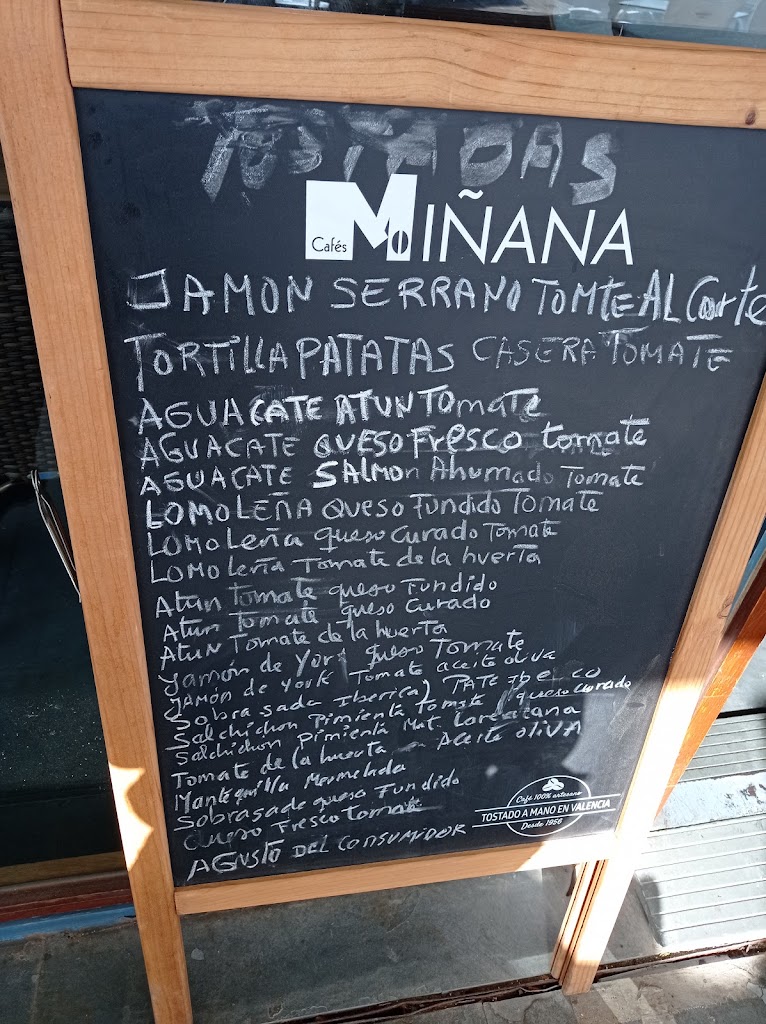 TOSTADAS
Cafés MIÑANA
JAMON SERRANO TOMTE AL Corte
TORTILLA PATATAS CASERA TOMATE
AGUACATE ATUN TOmaTe
AGUACATE QUESO Fresco tomate
AGUACATE SALMON Ahumado Tomate
LOMO LEÑA Queso Fundido Tomate
LOMO Leña queso Curado Tomate
LOMO Leña Tomate de la huerta
Atun tomate queso Fundido
Atun Tomate queso Curado
ATUN Tomate de la huerta
Jamón de York queso Tomate
JAMÓN de York Tomate aceite oliva
Sobrasada Iberica) PATE Iberico
Salchichon Pimienta Tomate queso Curado
Salchichon pimienta
Tomate de la huerta - Aceite OLIVA
Mantequilla Mermelada
Sobrasada queso Fundido
Queso Fresco tomate
AGUSTO DEL CONSUMIDOR
Café 100% artesano
TOSTADO A MANO EN VALENCIA
Desde 1956